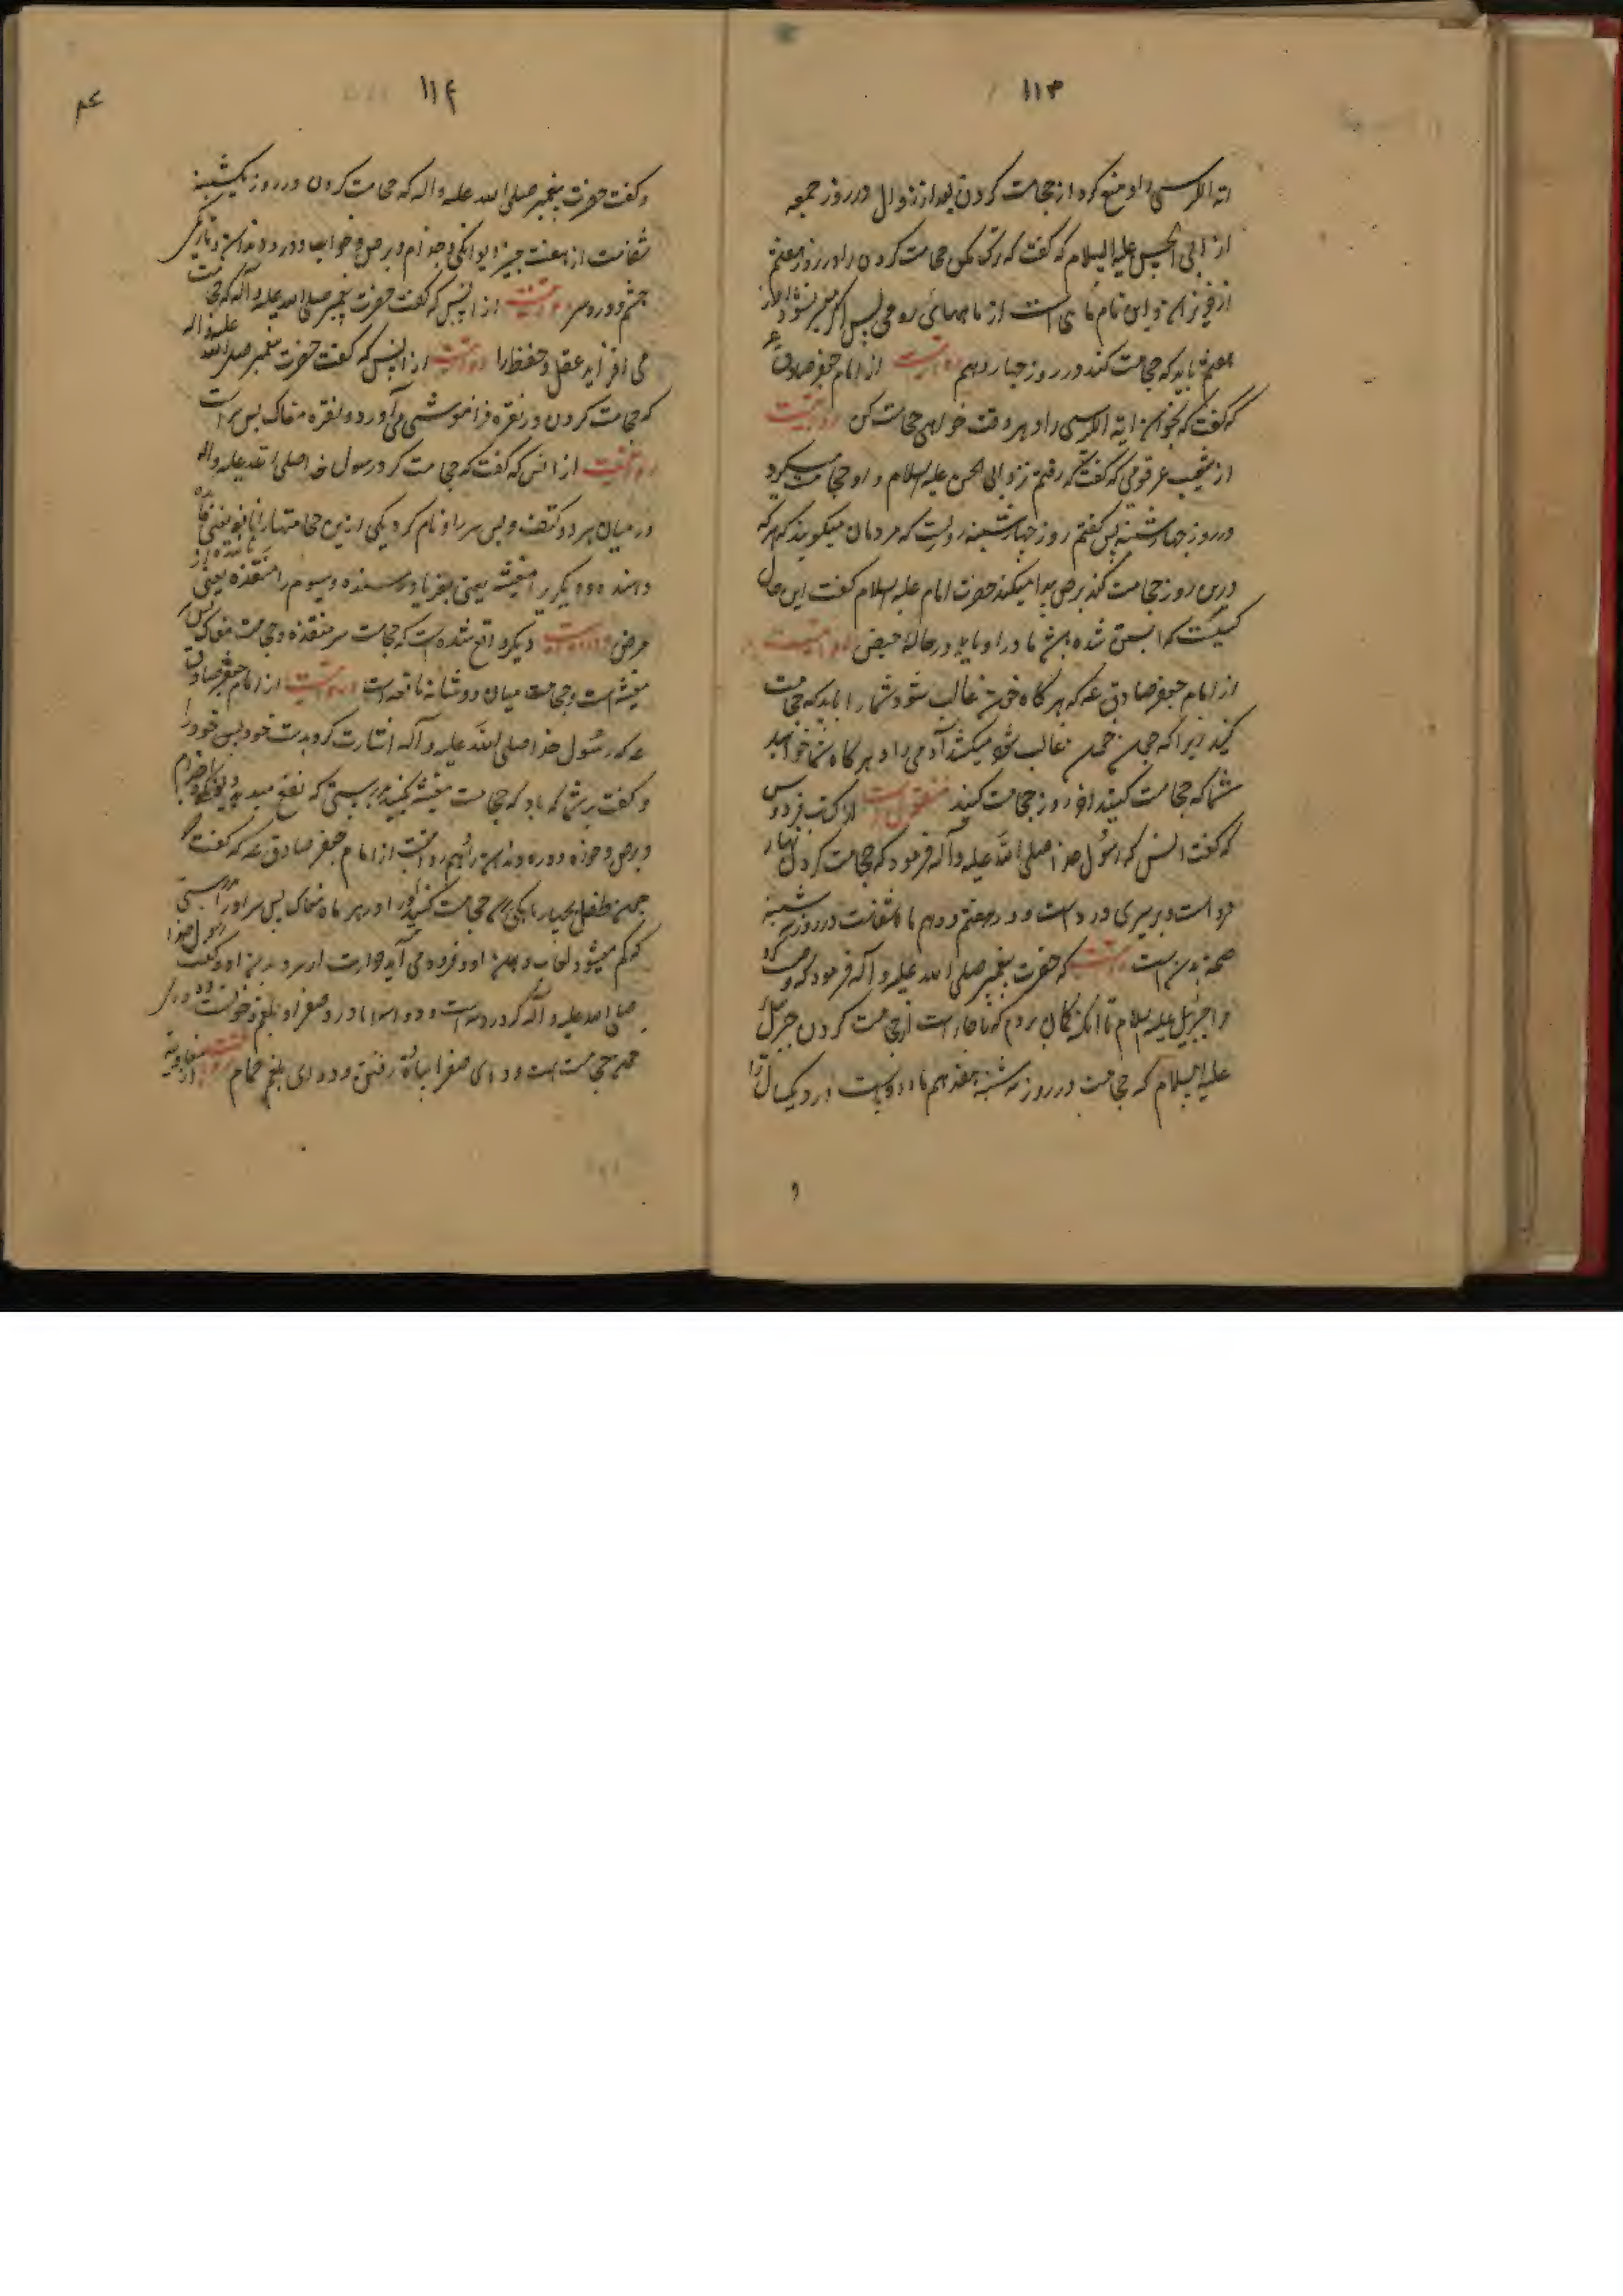 ۱۱۳
آیة الکرسی را و منع کرد از حجامت کردن بعد از زوال در روز جمعه
از ابی الحسن علیه السلام که گفت که ترک مکن حجامت کردن را در روز هفتم
از حزیران و این نام ماهی است از ماههای رومی پس اگر میسر نشود در
هفتم باید که حجامت کند در روز چهاردهم روایتست از امام جعفر صادق ع
که گفت که بخوان آیة الکرسی را و هر وقت خواهی حجامت کن روایتست
از شعیب عرقوفی که گفت که رفتم نزد ابی الحسن علیه السلام و او حجامت میکرد
در روز چهارشنبه پس گفتم روز چهارشنبه روزیست که مردمان میگویند که هر که
درین روز حجامت کند برص پیدا میکند حضرت امام علیه السلام گفت این حال
کسیست که آبستن شده باشد مادر او باو در حالة حیض روایتست
از امام جعفر صادق ع که هر گاه خون غالب شود شما را باید که حجامت
کنید زیرا که چون خون غالب شود میکشد آدمی را و هر گاه شما خواهید
شما که حجامت کنید آخر روز حجامت کنید منقولست از کتب فردوس
که گفت انس که رسول خدا صلی الله علیه و آله فرمود که حجامت کردن نهار
دواست و بر سیری درد است و در هفتم و دهم ماه شفاست در روز سه شنبه
صحة بدن است روایتست که حضرت پیغمبر صلی الله علیه و آله فرمود که وصیت کرد
مرا جبرئیل علیه السلام تا آنکه گمان بردم که ناچار است از حجامت کردن جبرئیل
علیه السلام که حجامت در روز سه شنبه هفدهم ماه دواست درد یکسال را
۱۱۴
و گفت حضرت پیغمبر صلی الله علیه و اله که حجامت کردن در روز یکشنبه
شفاست از هفت چیز دیوانگی و جذام و برص و خواب و درد دندان و تاریکی
چشم و درد سر روایتست از انس که گفت حضرت پیغمبر صلی الله علیه و آله که حجامت
می افزاید عقل و حفظ را روایتست از انس که گفت حضرت پیغمبر صلی الله علیه و اله
که حجامت کردن در نقره فراموشی می آورد و نقره مغاک پس سر است
روایتست از انس که گفت که حجامت کرد رسول خدا صلی الله علیه و اله
در میان هر دو کتف و پس سر را و نام کرد یکی ازین حجامتها را نافعه یعنی فایده
دهنده و دیگر را مغیثه یعنی بفریاد رسنده و سیوم را منقذه یعنی
مرض روایتست دیگر واقع شده است که حجامت سر منقذه و حجامت مغاک پس
مغیثه است و حجامت میان دو شانه نافعه است روایتست از امام جعفر صادق
ع که رسول خدا صلی الله علیه و آله اشارت کرد بدست خود بپس خود را
و گفت بر شما که باد که حجامت مغیثه کنید بدرستی که نفع میدهد دیوانگی و جذام
و برص و خوره و درد دندان را هم روایتست از امام جعفر صادق ع که گفت
چون طفل بچهار ماهگی رسد حجامت کنید او را در هر ماه مغاک پس سر او را بدرستی
که کم میشود لعاب دهان او و فرود می آید حرارت از سر و بدن او و گفت رسول خدا
صلی الله علیه و آله که درد سه است و دوا سه اما درد صفرا و بلغم و خونست و دوای
خون حجامت است و دوای صفرا پیاده رفتن و دوای بلغم حمام روایتست از معاویه